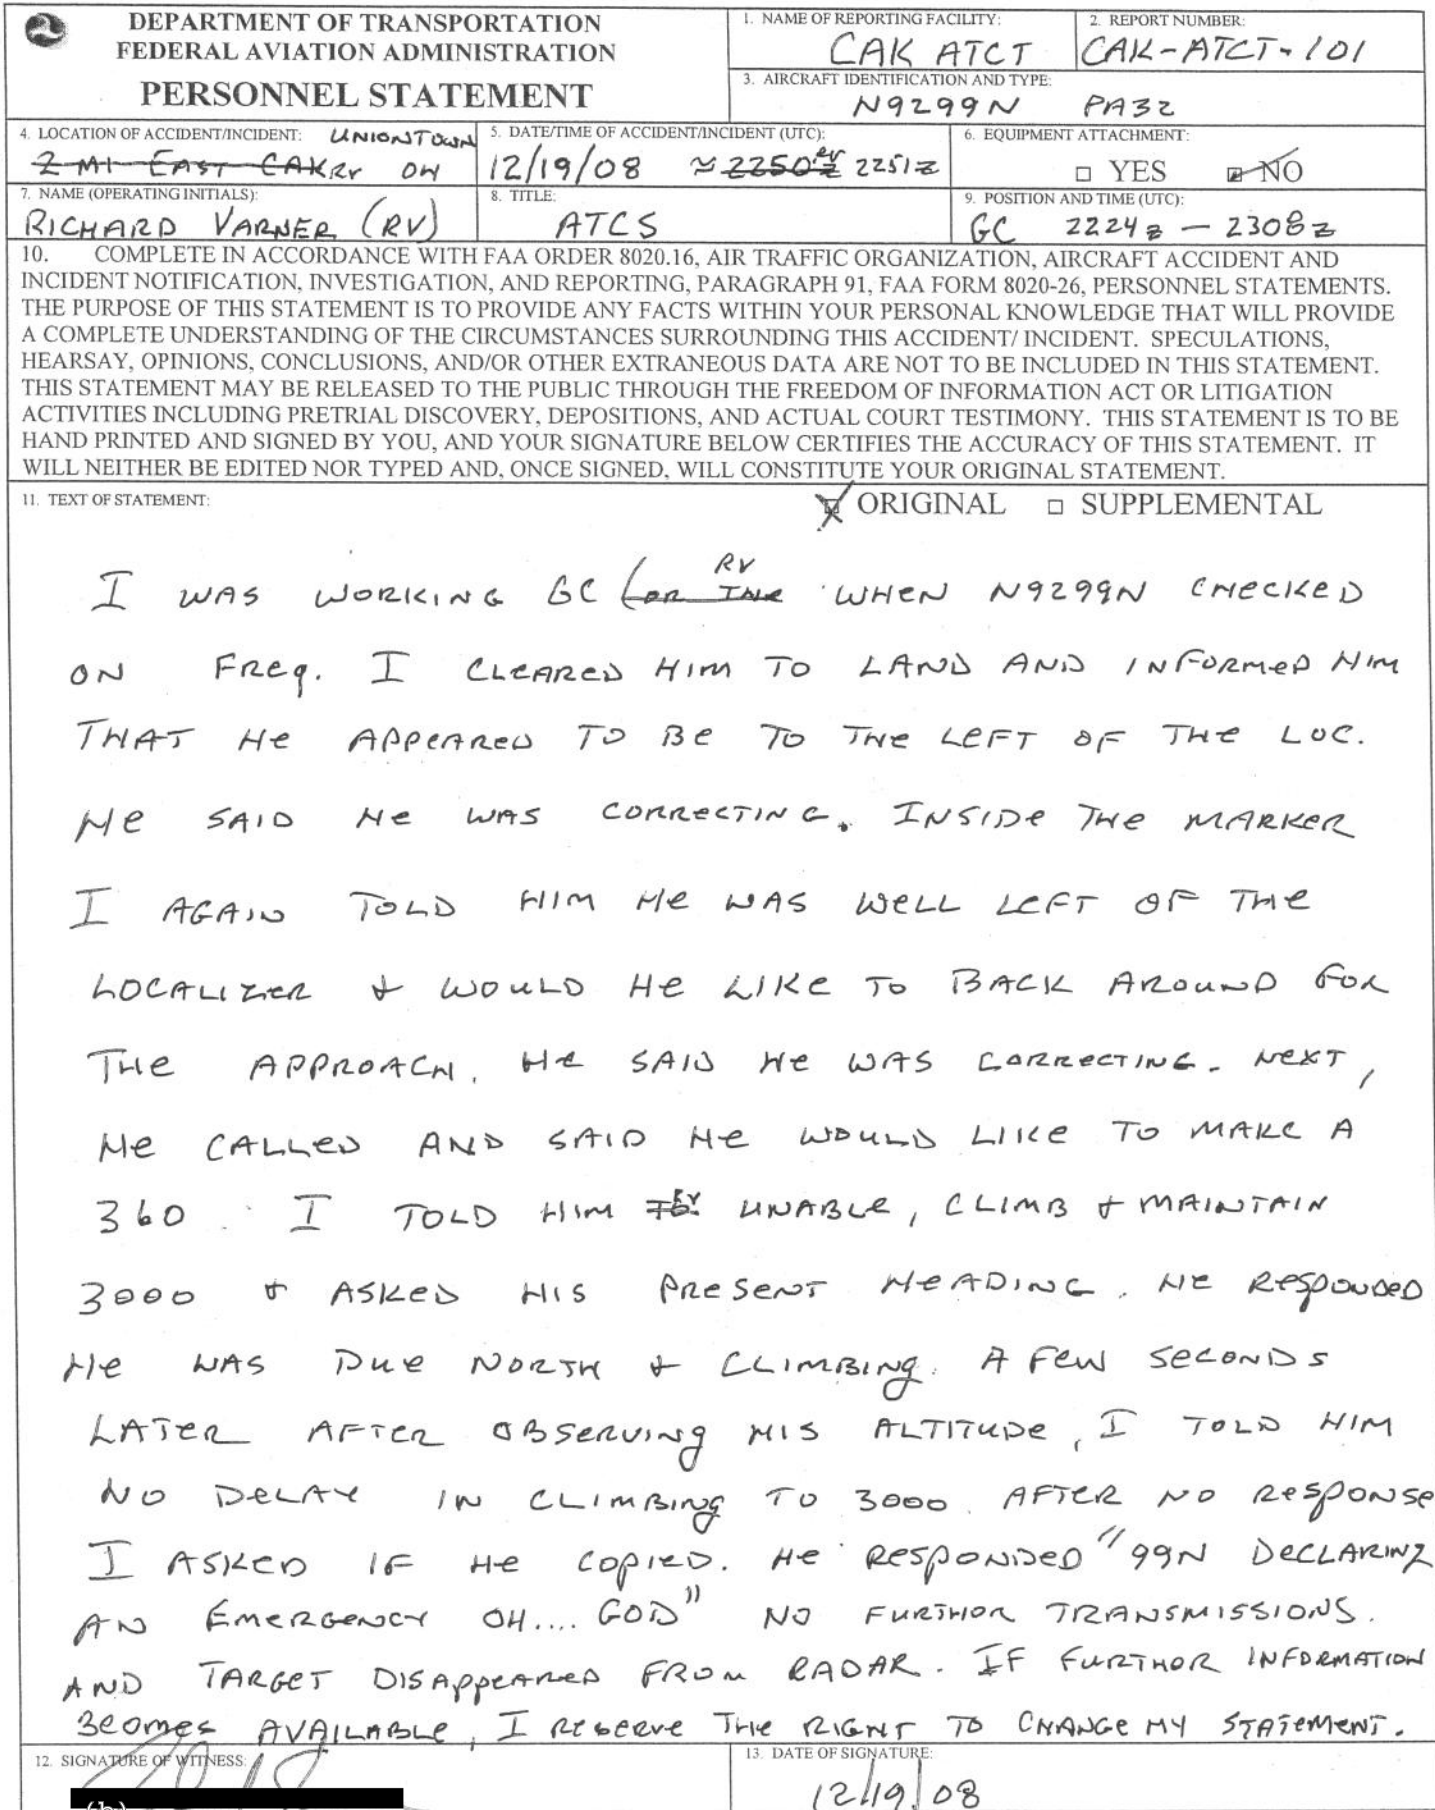 DEPARTMENT OF TRANSPORTATION
FEDERAL AVIATION ADMINISTRATION
PERSONNEL STATEMENT
1. NAME OF REPORTING FACILITY:
CAK ATCT
2. REPORT NUMBER:
CAK-ATCT-101
3. AIRCRAFT IDENTIFICATION AND TYPE:
N9299N PA32
4. LOCATION OF ACCIDENT/INCIDENT: UNIONTOWN
2 MI EAST CAK RV OH
5. DATE/TIME OF ACCIDENT/INCIDENT (UTC):
12/19/08 ≈ 2250z RV 2251z
6. EQUIPMENT ATTACHMENT:
□ YES ☒ NO
7. NAME (OPERATING INITIALS):
RICHARD VARNER (RV)
8. TITLE:
ATCS
9. POSITION AND TIME (UTC):
GC 2224z - 2308z
10. COMPLETE IN ACCORDANCE WITH FAA ORDER 8020.16, AIR TRAFFIC ORGANIZATION, AIRCRAFT ACCIDENT AND
INCIDENT NOTIFICATION, INVESTIGATION, AND REPORTING, PARAGRAPH 91, FAA FORM 8020-26, PERSONNEL STATEMENTS.
THE PURPOSE OF THIS STATEMENT IS TO PROVIDE ANY FACTS WITHIN YOUR PERSONAL KNOWLEDGE THAT WILL PROVIDE
A COMPLETE UNDERSTANDING OF THE CIRCUMSTANCES SURROUNDING THIS ACCIDENT/ INCIDENT. SPECULATIONS,
HEARSAY, OPINIONS, CONCLUSIONS, AND/OR OTHER EXTRANEOUS DATA ARE NOT TO BE INCLUDED IN THIS STATEMENT.
THIS STATEMENT MAY BE RELEASED TO THE PUBLIC THROUGH THE FREEDOM OF INFORMATION ACT OR LITIGATION
ACTIVITIES INCLUDING PRETRIAL DISCOVERY, DEPOSITIONS, AND ACTUAL COURT TESTIMONY. THIS STATEMENT IS TO BE
HAND PRINTED AND SIGNED BY YOU, AND YOUR SIGNATURE BELOW CERTIFIES THE ACCURACY OF THIS STATEMENT. IT
WILL NEITHER BE EDITED NOR TYPED AND, ONCE SIGNED, WILL CONSTITUTE YOUR ORIGINAL STATEMENT.
11. TEXT OF STATEMENT:
☒ ORIGINAL □ SUPPLEMENTAL
RV
I WAS WORKING GC WHEN N9299N CHECKED
ON FREQ. I CLEARED HIM TO LAND AND INFORMED HIM
THAT HE APPEARED TO BE TO THE LEFT OF THE LOC.
HE SAID HE WAS CORRECTING. INSIDE THE MARKER
I AGAIN TOLD HIM HE WAS WELL LEFT OF THE
LOCALIZER & WOULD HE LIKE TO BACK AROUND FOR
THE APPROACH. HE SAID HE WAS CORRECTING. NEXT,
HE CALLED AND SAID HE WOULD LIKE TO MAKE A
360. I TOLD HIM RV UNABLE, CLIMB & MAINTAIN
3000 & ASKED HIS PRESENT HEADING. HE RESPONDED
HE WAS DUE NORTH & CLIMBING. A FEW SECONDS
LATER AFTER OBSERVING HIS ALTITUDE, I TOLD HIM
NO DELAY IN CLIMBING TO 3000. AFTER NO RESPONSE
I ASKED IF HE COPIED. HE RESPONDED "99N DECLARING
AN EMERGENCY OH.... GOD" NO FURTHOR TRANSMISSIONS.
AND TARGET DISAPPEARED FROM RADAR. IF FURTHOR INFORMATION
BECOMES AVAILABLE, I RESERVE THE RIGHT TO CHANGE MY STATEMENT.
12. SIGNATURE OF WITNESS:
13. DATE OF SIGNATURE:
12/19/08